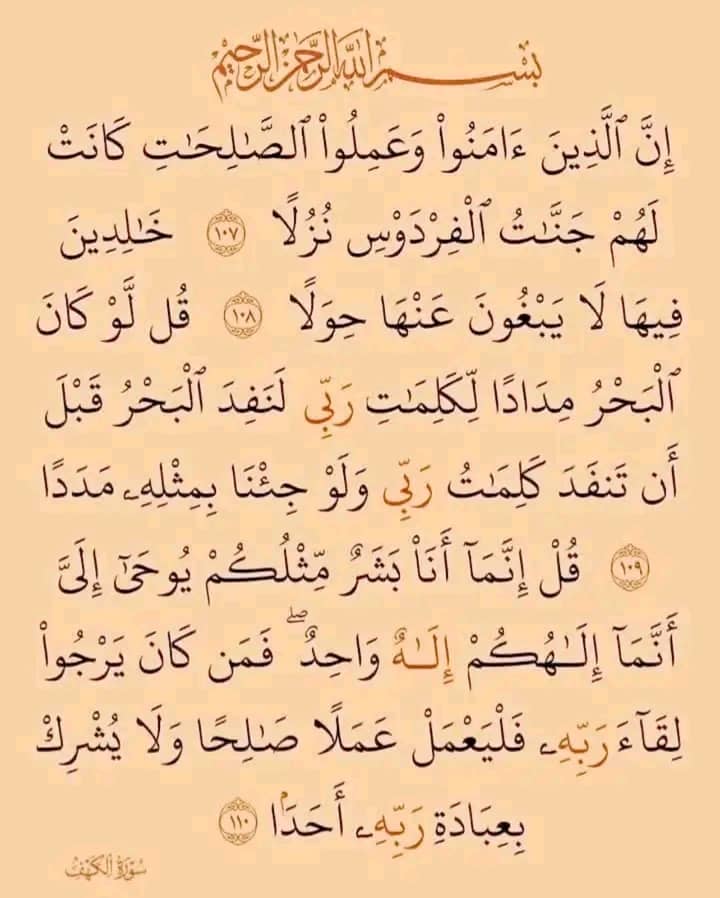 بِسْمِ اللَّهِ الرَّحْمَٰنِ الرَّحِيمِ
إِنَّ ٱلَّذِينَ ءَامَنُوا۟ وَعَمِلُوا۟ ٱلصَّـٰلِحَـٰتِ كَانَتْ
لَهُمْ جَنَّـٰتُ ٱلْفِرْدَوْسِ نُزُلًا ١٠٧ خَـٰلِدِينَ
فِيهَا لَا يَبْغُونَ عَنْهَا حِوَلًا ١٠٨ قُل لَّوْ كَانَ
ٱلْبَحْرُ مِدَادًا لِّكَلِمَـٰتِ رَبِّى لَنَفِدَ ٱلْبَحْرُ قَبْلَ
أَن تَنفَدَ كَلِمَـٰتُ رَبِّى وَلَوْ جِئْنَا بِمِثْلِهِۦ مَدَدًا
١٠٩ قُلْ إِنَّمَآ أَنَا۠ بَشَرٌ مِّثْلُكُمْ يُوحَىٰٓ إِلَىَّ
أَنَّمَآ إِلَـٰهُكُمْ إِلَـٰهٌ وَٰحِدٌ ۖ فَمَن كَانَ يَرْجُوا۟
لِقَآءَ رَبِّهِۦ فَلْيَعْمَلْ عَمَلًا صَـٰلِحًا وَلَا يُشْرِكْ
بِعِبَادَةِ رَبِّهِۦٓ أَحَدًۢا ١١٠
سُورَةُ الكَهْفِ